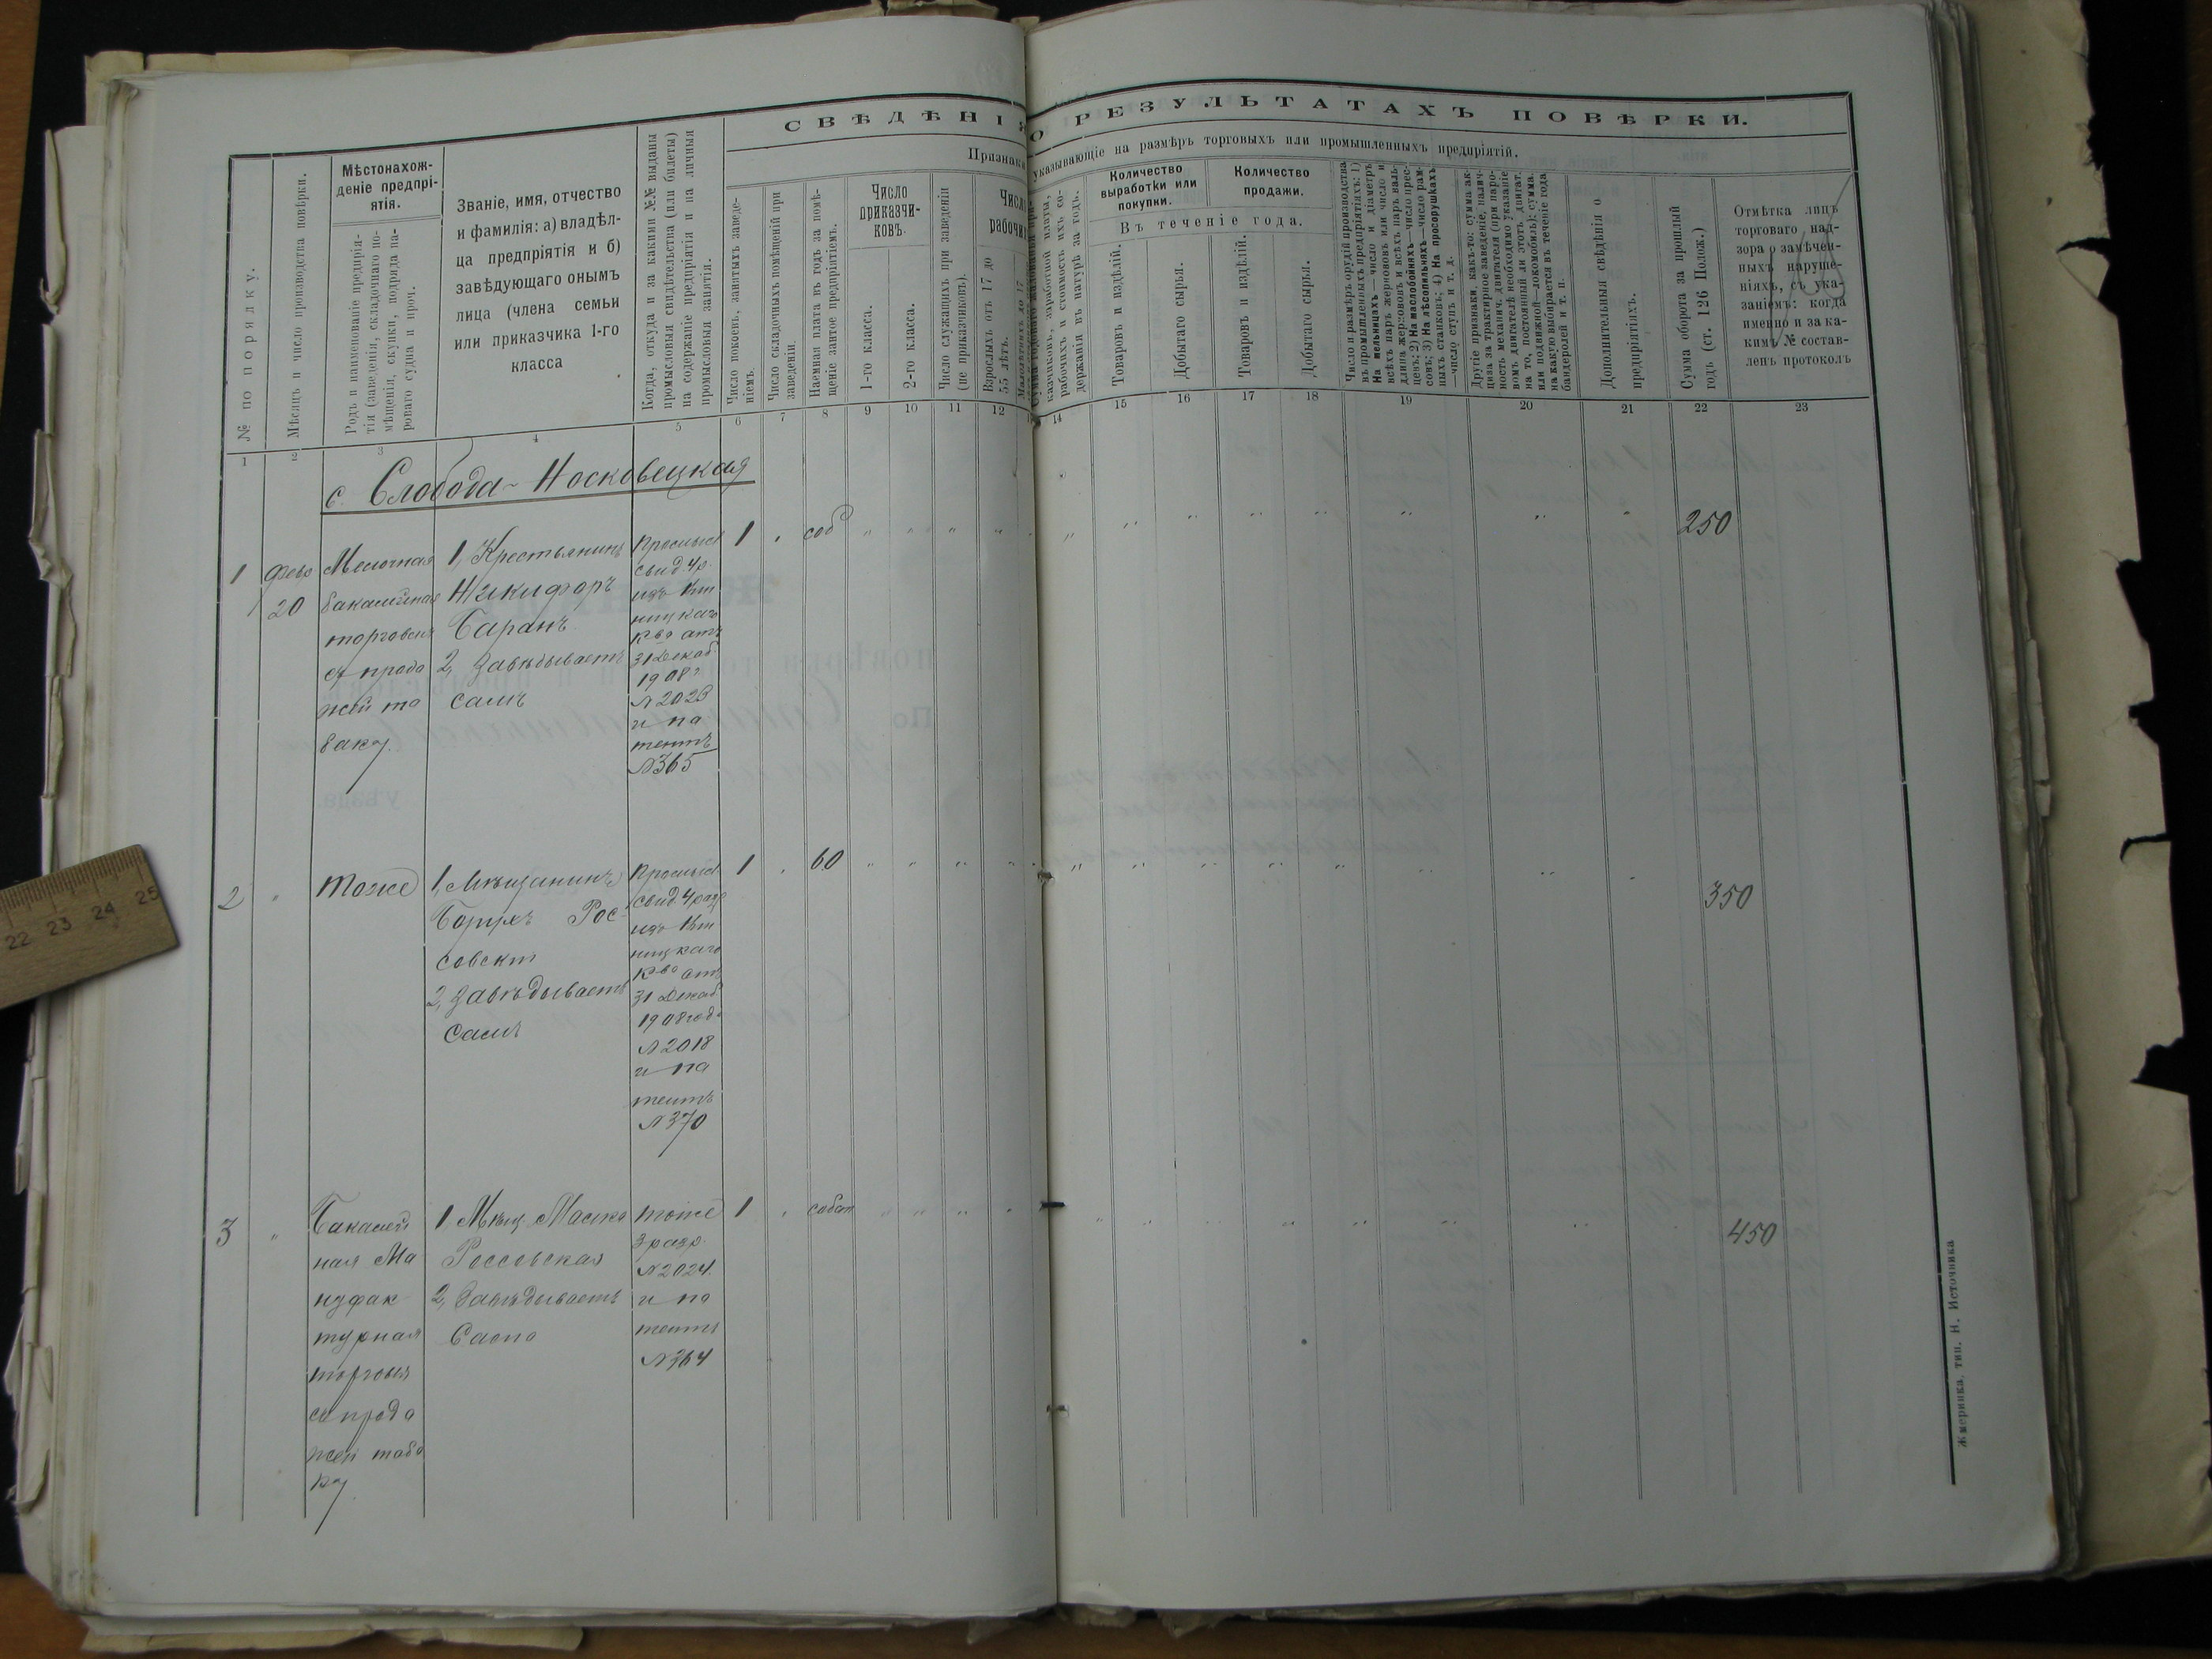 СВѢДѢНІЯ О РЕЗУЛЬТАТАХЪ ПОВѢРКИ.
Признаки, указывающіе на размѣръ торговыхъ или промышленныхъ предпріятій.
№ по порядку.
Мѣсяцъ и число производства повѣрки.
Мѣстонахож-
деніе предпрі-
ятія.
Родъ и наименованіе предпрія-
тія (заведенія, складочнаго по-
мѣщенія, скупки, подряда па-
роваго судна и проч.
Званіе, имя, отчество
и фамилія: а) владѣл-
ца предпріятія и б)
завѣдующаго онымъ
лица (члена семьи
или приказчика 1-го
класса
Когда, откуда и за какими №№ выданы
промысловыя свидѣтельства (или билеты)
на содержаніе предпріятія и на личныя
промысловыя занятія.
Число покоевъ, занятыхъ заведе-
ніемъ.
Число складочныхъ помѣщеній при
заведеніи.
Наемная плата въ годъ за помѣ-
щеніе занятое предпріятіемъ.
Число
приказчи-
ковъ.
1-го класса.
2-го класса.
Число служащихъ при заведеніи
(не приказчиковъ).
Число
рабочихъ
Взрослыхъ отъ 17 до
55 лѣтъ.
Малолѣтнихъ до 17
казчиковъ, заработной платы,
рабочихъ и стоимость ихъ со-
держанія въ натурѣ за годъ.
Количество
выработки или
покупки.
Количество
продажи.
Въ теченіе года.
Товаровъ и издѣлій.
Добытаго сырья.
Товаровъ и издѣлій.
Добытаго сырья.
Число и размѣръ орудій производства
въ промышленныхъ предпріятіяхъ: 1)
На мельницахъ — число и діаметръ
всѣхъ паръ жернововъ или число и
длина жернововъ и всѣхъ паръ валь-
цевъ; 2) На маслобойняхъ — число прес-
совъ; 3) На лѣсопильняхъ — число рам-
ныхъ станковъ; 4) На просорушкахъ
— число ступъ и т. д.
Другіе признаки, какъ-то: сумма ак-
циза за трактирное заведеніе, налич-
ность механич. двигателя (при паро-
вомъ двигателѣ необходимо указаніе
на то, постоянный ли этотъ двигат.
или подвижной—локомобиль); сумма,
на какую выбирается въ теченіе года
бандеролей и т. п.
Дополнительныя свѣдѣнія о
предпріятіяхъ.
Сумма оборота за прошлый
годъ (ст. 126 Полож.)
Отмѣтка лицъ
торговаго над-
зора о замѣчен-
ныхъ наруше-
ніяхъ, съ ука-
заніемъ: когда
именно и за ка-
кимъ № состав-
ленъ протоколъ
1 2 3 4 5 6 7 8 9 10 11 12 14 15 16 17 18 19 20 21 22 23
с. Слобода-Носковецкая
1
Февр
20
Мелочная
бакалейная
торговля
съ прода
жей та
баку.
1, Крестьянинъ
Никифоръ
Баранъ
2, Завѣдываетъ
самъ
Промысл
свид. 4 р.
изъ Вин
ницкаго
К-во отъ
31 Декаб
1908 г.
№ 2023
и па
тентъ
№ 365
1
соб
250
2
"
тоже
1, Мѣщанинъ
Борухъ Рос-
совскій
2, Завѣдываетъ
самъ
Промысл
свид. 4 раз
изъ Вин
ницкаго
К-во отъ
31 Декаб
1908 года
№ 2018
и па
тентъ
№ 370
1
60
350
3
"
Бакалей
ная Ма
нуфак
турная
торговля
съ прода
жей таба
ку
1, Мѣщ.
Россовская
2, Завѣдываетъ
Сама
тоже
3 разр.
№ 2024.
и па
тентъ
№ 364
1
собст
450
Жмеринка, тип. Н. Источника